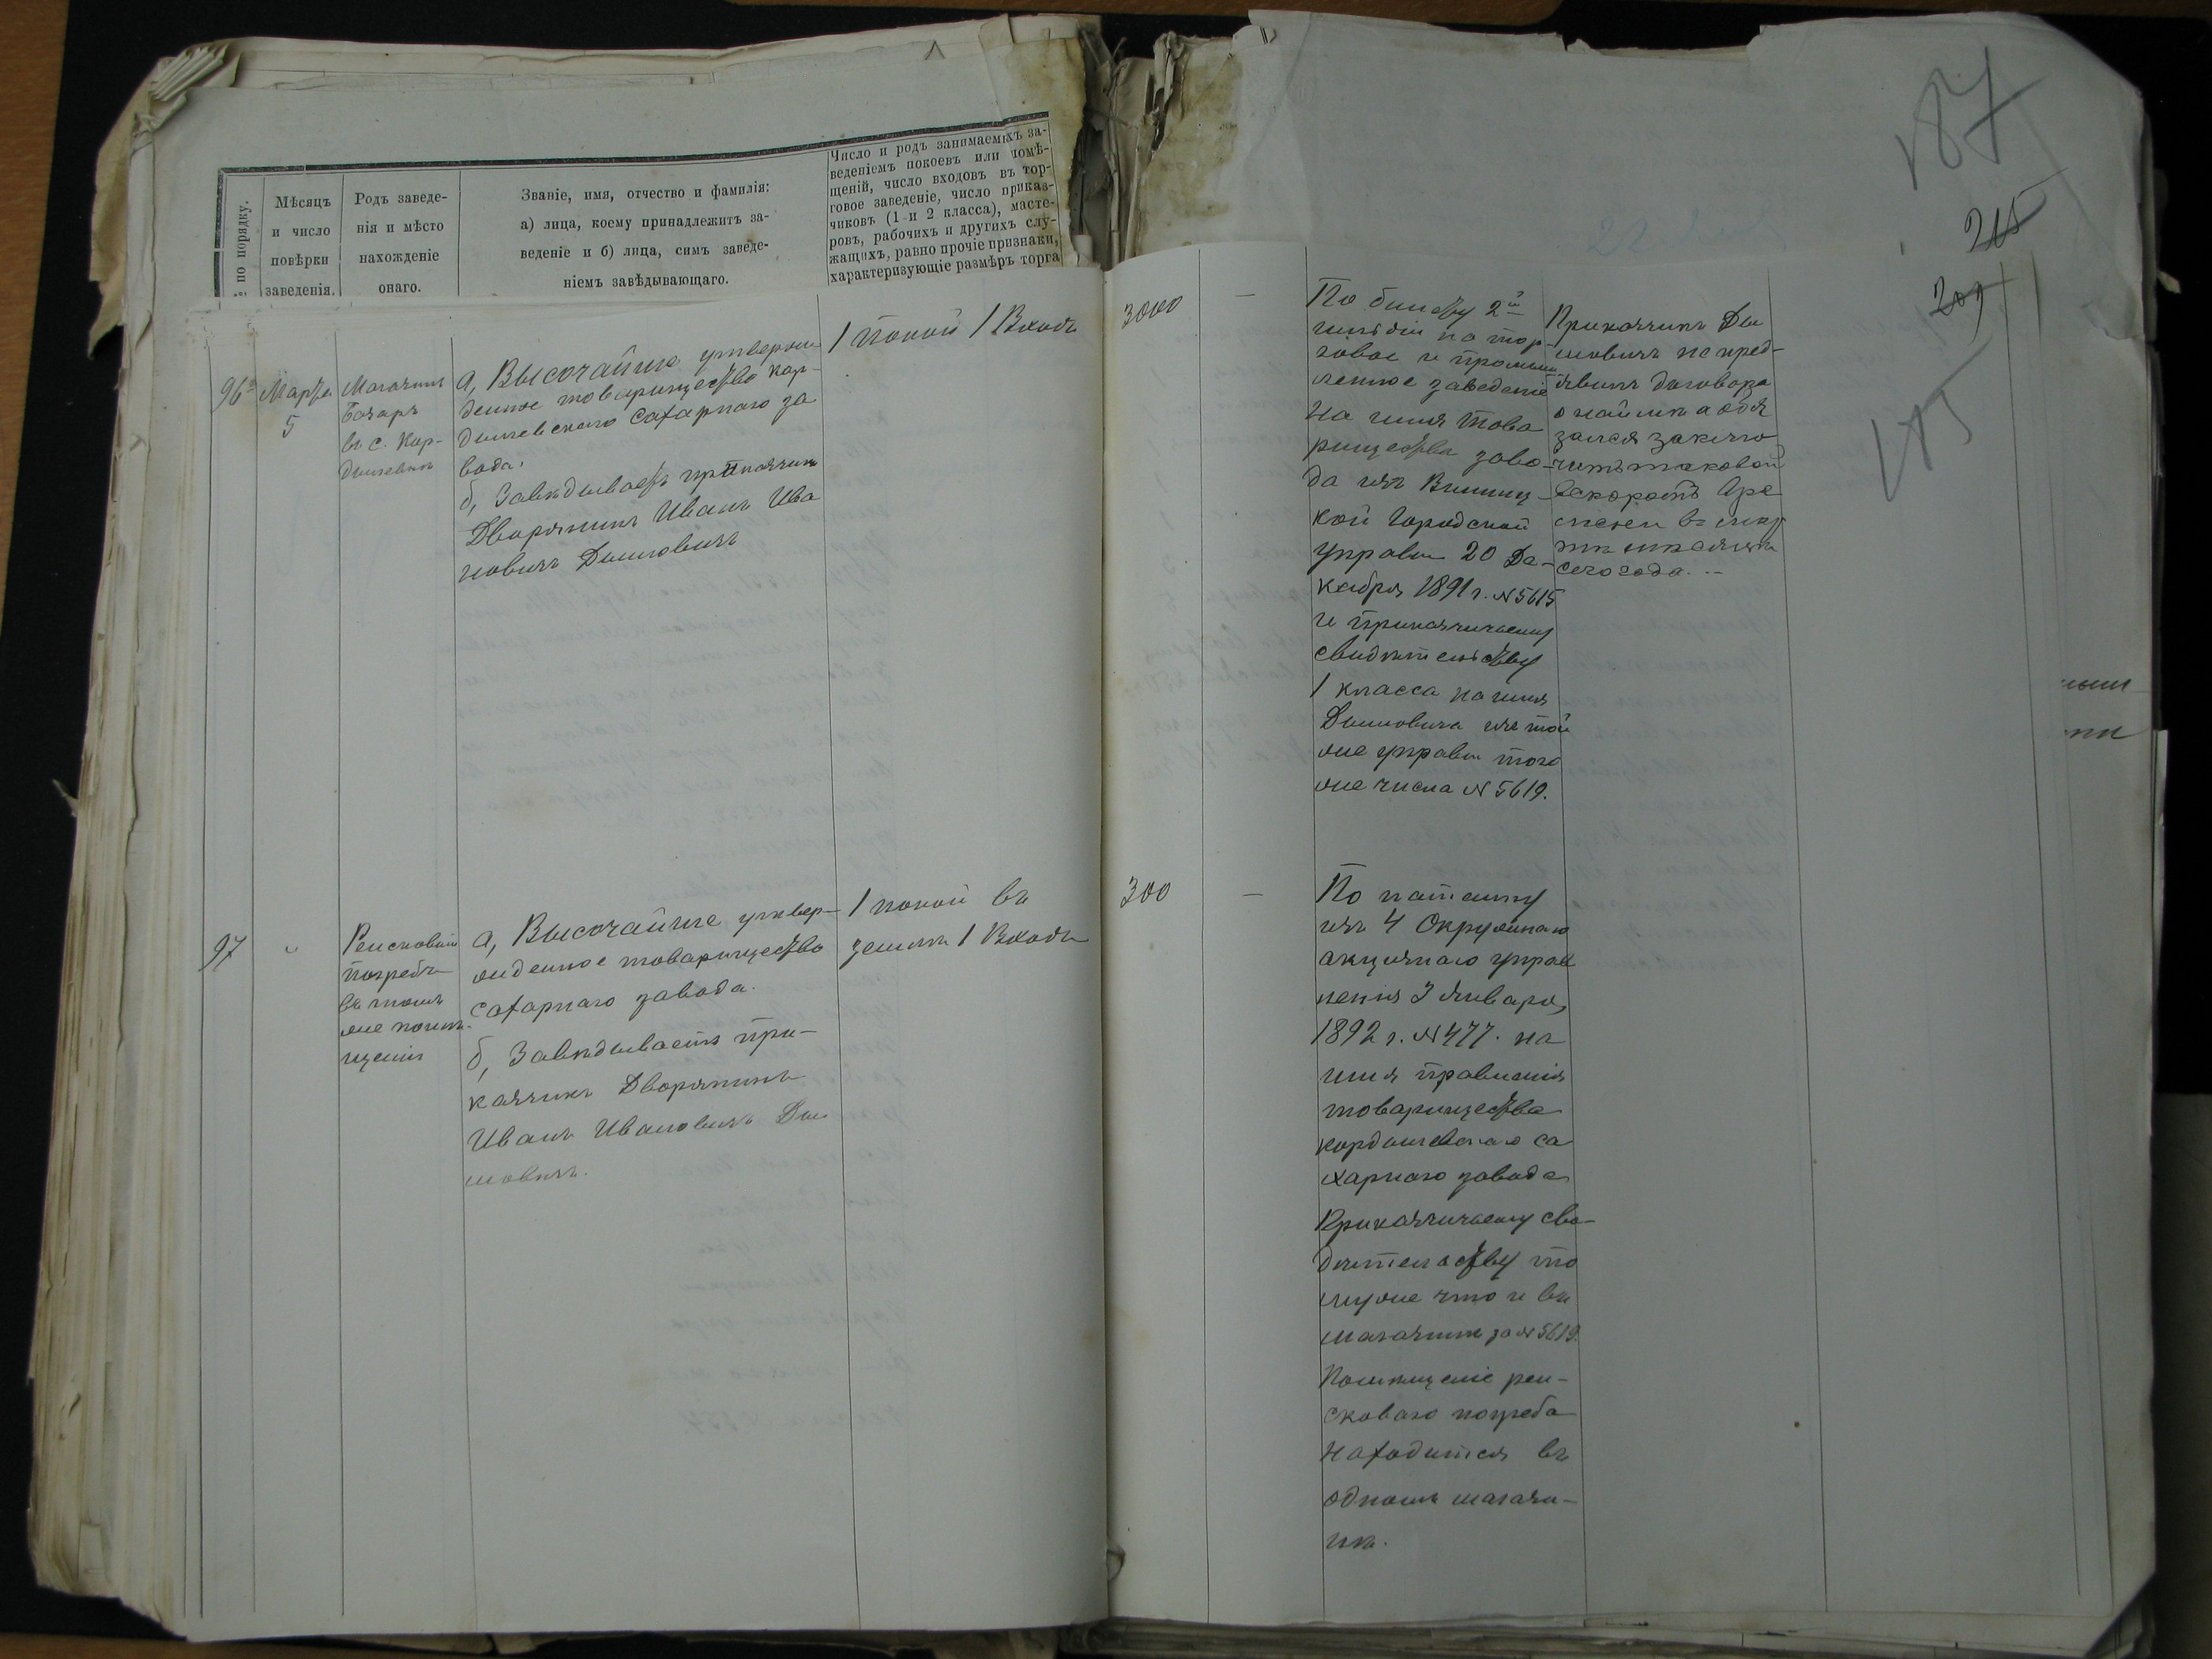 187
215
209
185
№ по порядку.
Мѣсяцъ
и число
повѣрки
заведенія.
Родъ заведе-
нія и мѣсто
нахожденіе
онаго.
Званіе, имя, отчество и фамилія:
а) лица, коему принадлежитъ за-
веденіе и б) лица, симъ заведе-
ніемъ завѣдывающаго.
Число и родъ занимаемыхъ за-
веденіемъ покоевъ или помѣ-
щеній, число входовъ въ тор-
говое заведеніе, число приказ-
чиковъ (1 и 2 класса), масте-
ровъ, рабочихъ и другихъ слу-
жащихъ, равно прочіе признаки,
характеризующіе размѣръ торга
96
Марта
5
Магазинъ
базаръ
въ с. Кор-
дышевкѣ
а, Высочайше утвержд
денное товарищество Кор-
дышевскаго сахарнаго за
вода.
б, Завѣдываетъ приказчикъ
Дворянинъ Иванъ Ива
новичъ
1 покой 1 Входъ
3000
—
По билету 2й
гильдіи на тор-
говое и промыш
ленное заведеніе
на имя Това
рищества заво-
да изъ Винниц-
кой Городской
Управы 20 Де-
кабря 1891 г. № 5615
и приказчичьему
свидѣтельству
1 класса на имя
изъ той
же управы того
же числа № 5619.
Приказчикъ
не пред-
явилъ договора
о наймѣ а обя
зался заключ
чить таковой
въ скоромъ вре
мени въ
сего года.
97
"
Ренсковый
погребъ
въ томъ
же помѣ-
щеніи
а, Высочайше утвер-
жденное товарищество
сахарнаго завода.
б, Завѣдываетъ при-
казчикъ Дворянинъ
Иванъ Ивановичъ
1 покой въ
землѣ 1 Входъ
300
—
По патенту
изъ 4 Окружнаго
акцизнаго управ
ленія 3 Января
1892 г. № 477. на
имя правленія
товарищества
кордышевскаго са
харнаго завода
Приказчичьему сви-
дѣтельству то
муже что и въ
магазинѣ за № 5619.
Помѣщеніе рен-
сковаго погреба
находится въ
одномъ магази-
нѣ.